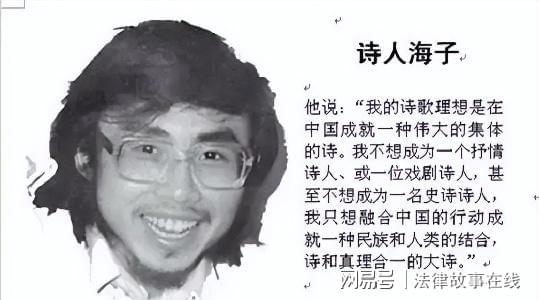 诗人海子
他说：“我的诗歌理想是在
中国成就一种伟大的集体
的诗。我不想成为一个抒情
诗人、或一位戏剧诗人，甚
至不想成为一名史诗诗人，
我只想融合中国的行动成
就一种民族和人类的结合，
诗和真理合一的大诗。”
网易号 | 法律故事在线